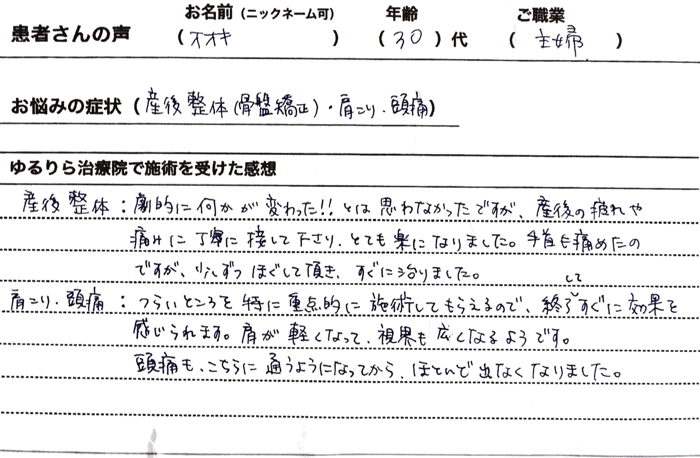 患者さんの声 お名前(ニックネーム可) (オオキ) 年齢 (30)代 ご職業 (主婦)
お悩みの症状 (産後整体(骨盤矯正)・肩こり・頭痛)
ゆるりら治療院で施術を受けた感想
産後整体：劇的に何かが変わった!!とは思わなかったですが、産後の疲れや
痛みに丁寧に接して下さり、とても楽になりました。手首も痛めたの
ですが、少しずつほぐして頂き、すぐに治りました。
肩こり・頭痛：つらいところを特に重点的に施術してもらえるので、終了してすぐに効果を
感じられます。肩が軽くなって、視界も広くなるようです。
頭痛も、こちらに通うようになってから、ほとんど出なくなりました。